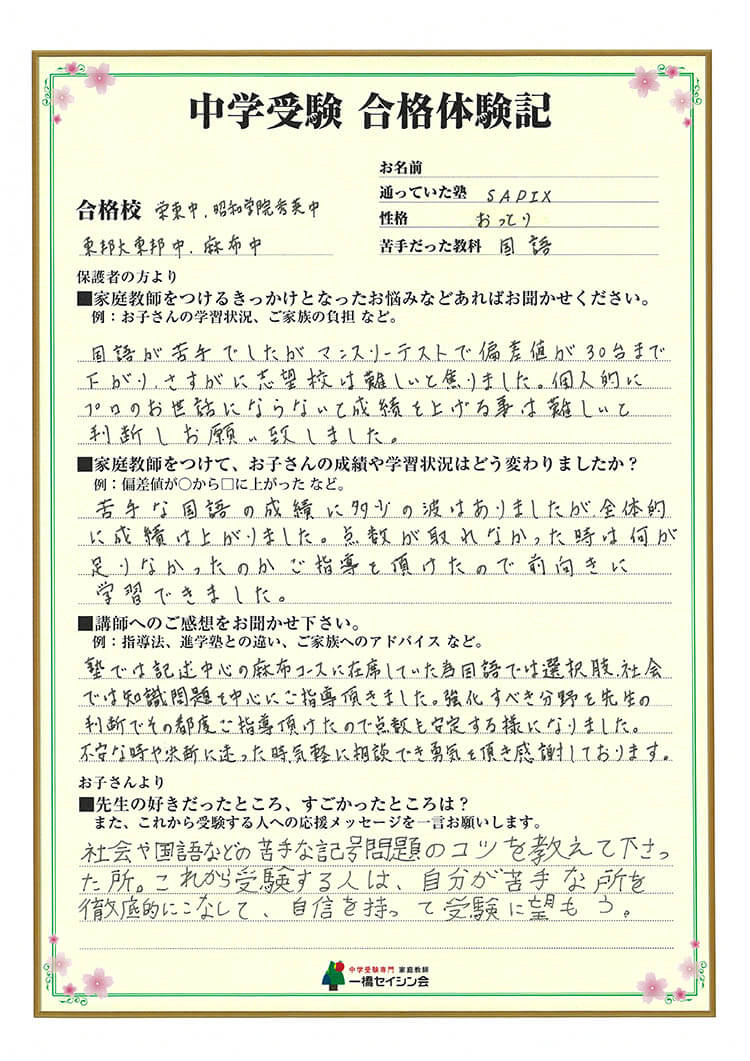 中学受験 合格体験記
お名前
通っていた塾 SAPIX
合格校 栄東中、昭和学院秀英中
性格 おっとり
東邦大東邦中、麻布中
苦手だった教科 国語
保護者の方より
■家庭教師をつけるきっかけとなったお悩みなどあればお聞かせください。
例：お子さんの学習状況、ご家族の負担 など。
国語が苦手でしたがマンスリーテストで偏差値が30台まで
下がり、さすがに志望校は難しいと焦りました。個人的に
プロのお世話にならないと成績を上げる事は難しいと
判断しお願い致しました。
■家庭教師をつけて、お子さんの成績や学習状況はどう変わりましたか？
例：偏差値が○から□に上がった など。
苦手な国語の成績に多少の波はありましたが全体的
に成績は上がりました。点数が取れなかった時は何が
足りなかったのかご指導を頂けたので前向きに
学習できました。
■講師へのご感想をお聞かせ下さい。
例：指導法、進学塾との違い、ご家族へのアドバイス など。
塾では記述中心の麻布コースに在席していた為国語では選択肢、社会
では知識問題を中心にご指導頂きました。強化すべき分野を先生の
判断でその都度ご指導頂けたので点数も安定する様になりました。
不安な時や決断に迷った時気軽に相談でき勇気を頂き感謝しております。
お子さんより
■先生の好きだったところ、すごかったところは？
また、これから受験する人への応援メッセージを一言お願いします。
社会や国語などの苦手な記号問題のコツを教えて下さっ
た所。これから受験する人は、自分が苦手な所を
徹底的にこなして、自信を持って受験に望もう。
中学受験専門 家庭教師
一橋セイシン会